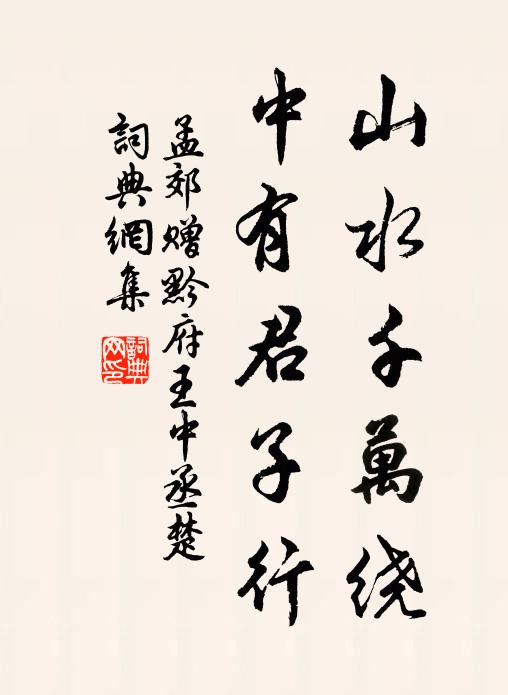 山水千萬绕
中有君子行
孟郊赠黔府王中丞楚
詞典網集
詞典网印